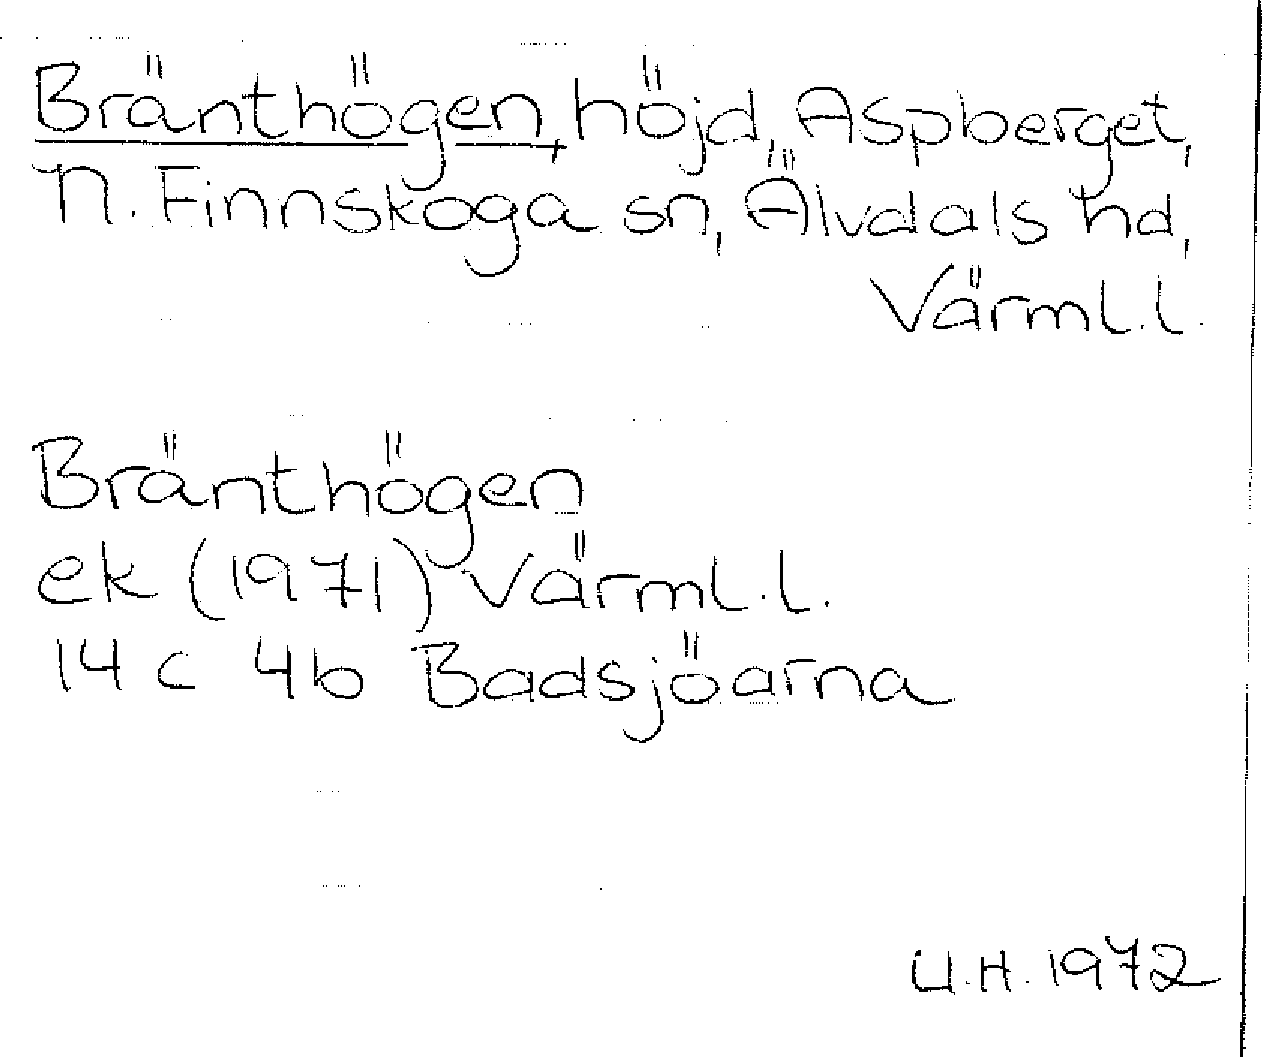 Bränthögen, höjd, Aspberget,
N. Finnskoga sn, Älvdals hd,
Värml.l.
Bränthögen
ek (1971) Värml.l.
14 c 4b Badsjöarna
U.H. 1972